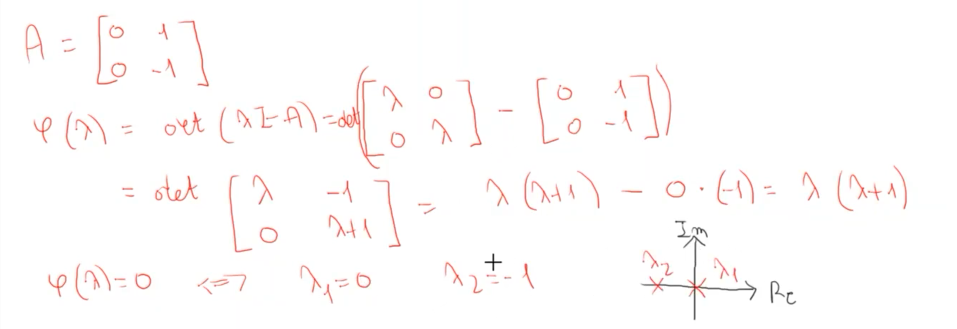 A = [0 1
0 -1]
φ(λ) = det (λI-A) = det([λ 0
0 λ] - [0 1
0 -1])
= det [λ -1
0 λ+1] = λ (λ+1) - 0 · (-1) = λ (λ+1)
φ(λ)=0 <=> λ₁=0 λ₂=-1
Im
λ₂ λ₁
Re